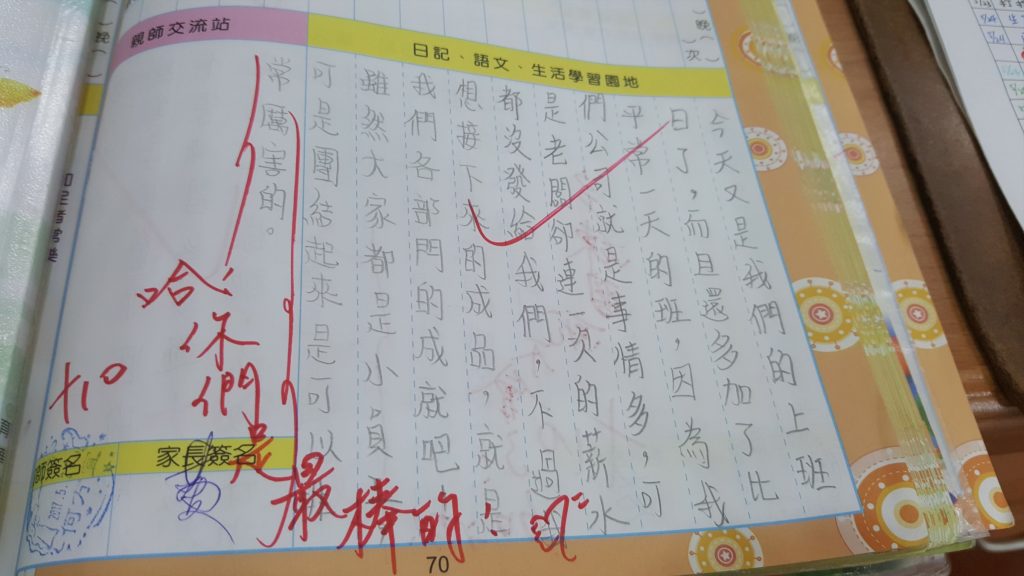 親師交流站
日記、語文、生活學習園地
今天又是我們的上班
日了，而且還多加了比
平常一天的班，因為我
們公司就是事情多，可
是老闆卻連一次的薪水
都沒發給我們，不過我
想接下來的成品，就是
我們各部門的成就吧
雖然大家都是小員
可是團結起來是可以
常厲害的。
哈!
你們是最棒的!
+10
師簽名
家長簽名
70